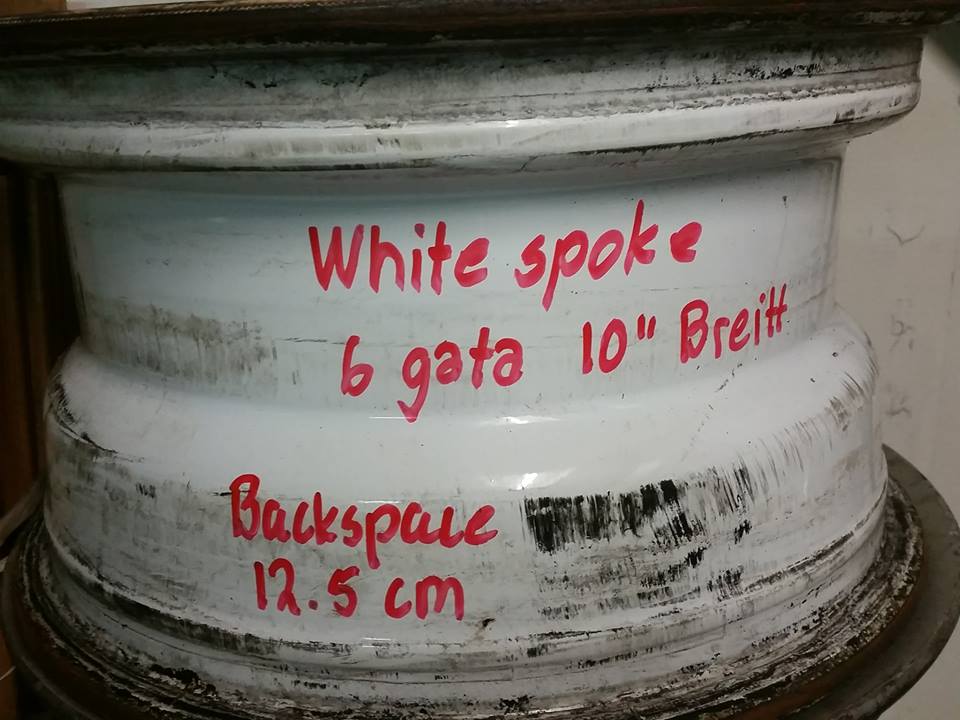 White spoke
6 gata 10" Breitt
Backspace
12.5 cm